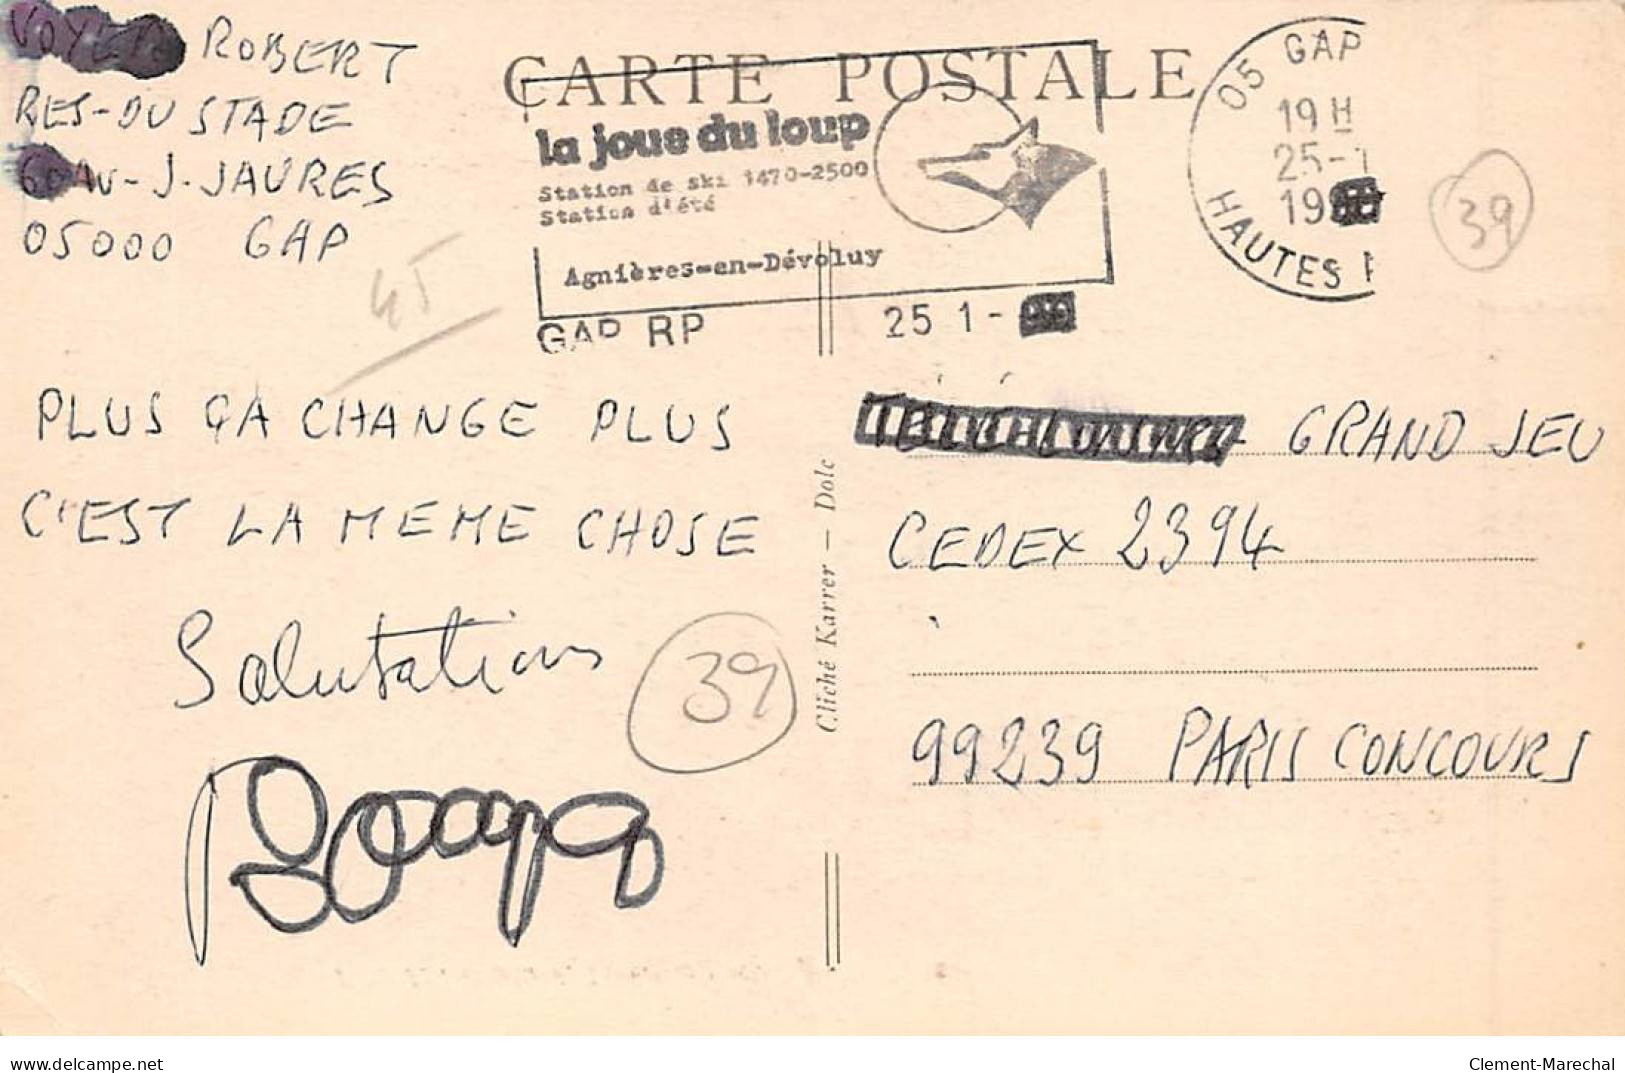 ROBERT
RES-DU STADE
J. JAURES
05000 GAP
CARTE POSTALE
la joue du loup
Station de ski 1470-2500
Station d'été
Agnières-en-Dévoluy
GAP RP
25 1-
05 GAP
19 H
25-1
19
HAUTES
39
45
PLUS ÇA CHANGE PLUS
C'EST LA MEME CHOSE
Salutations
39
Cliché Karrer — Dole
GRAND JEU
CEDEX 2394
99239 PARIS CONCOURS
delcampe.net
Clement-Marechal